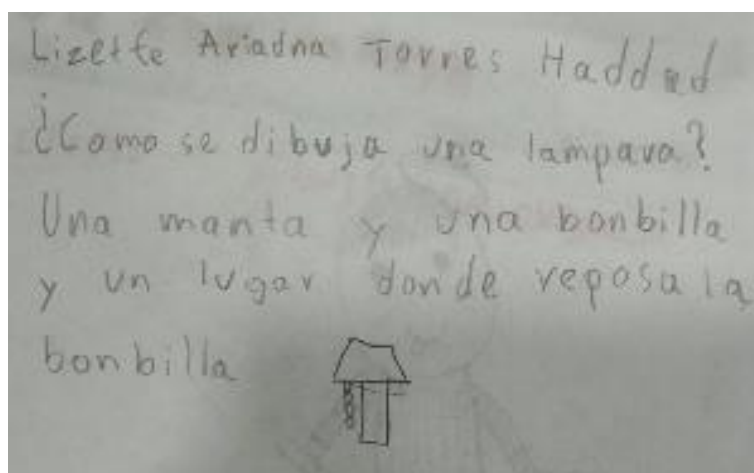 Lizette Ariadna Torres Haddad
¿Como se dibuja una lampara?
Una manta y una bonbilla
y un lugar donde reposa la
bonbilla